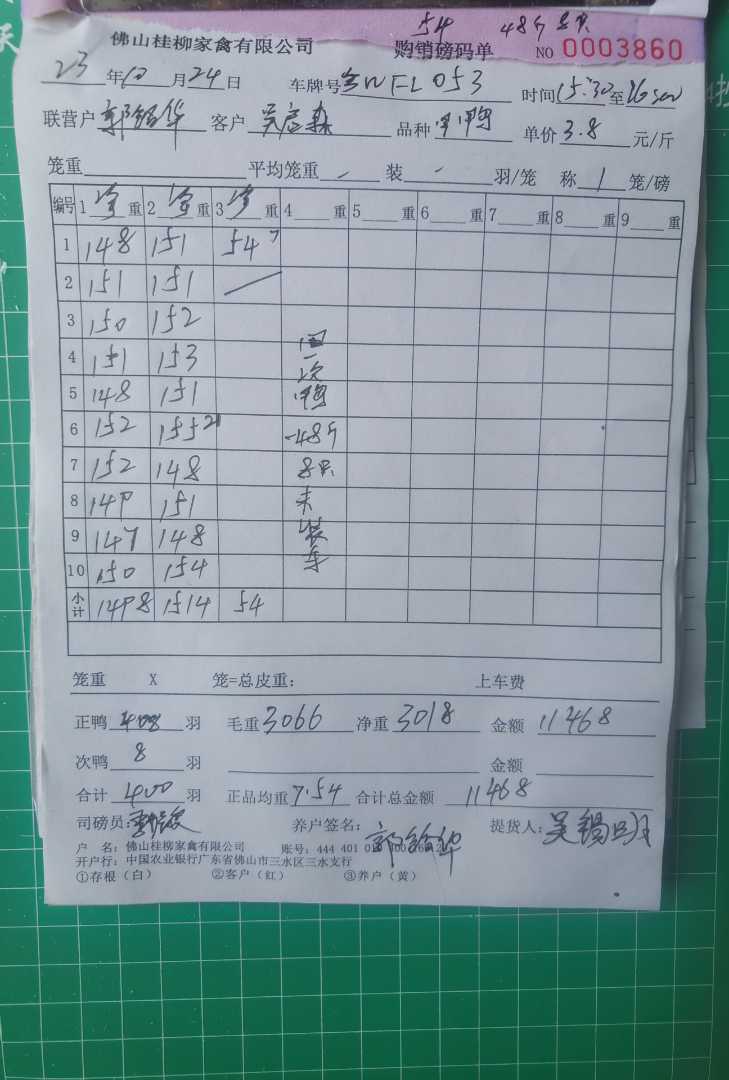 54 48斤
佛山桂柳家禽有限公司 购销磅码单 NO 0003860
23年10月24日 车牌号 WFL053 时间15:30至16
联营户 郭锦华 客户 品种 单价3.8元/斤
笼重 平均笼重 装 羽/笼 称1笼/磅
编号 1 重 2 重 3 重 4 重 5 重 6 重 7 重 8 重 9 重
1 148 151 54 7
2 151 151
3 150 152
4 151 153
5 148 151
6 152 155 21
7 152 148
8 149 151
9 147 148
10 150 154
小计 1498 1514 54
次
鸭
-48斤
8只
未
装
车
笼重 X 笼=总皮重: 上车费
正鸭 羽 毛重3066 净重3018 金额 11468
次鸭 8 羽 金额
合计 400 羽 正品均重7.54 合计总金额 11468
司磅员: 养户签名: 郭锦华 提货人: 吴锡明
户 名: 佛山桂柳家禽有限公司 账号: 444 401
开户行: 中国农业银行广东省佛山市三水区三水支行
①存根(白) ②客户(红) ③养户(黄)